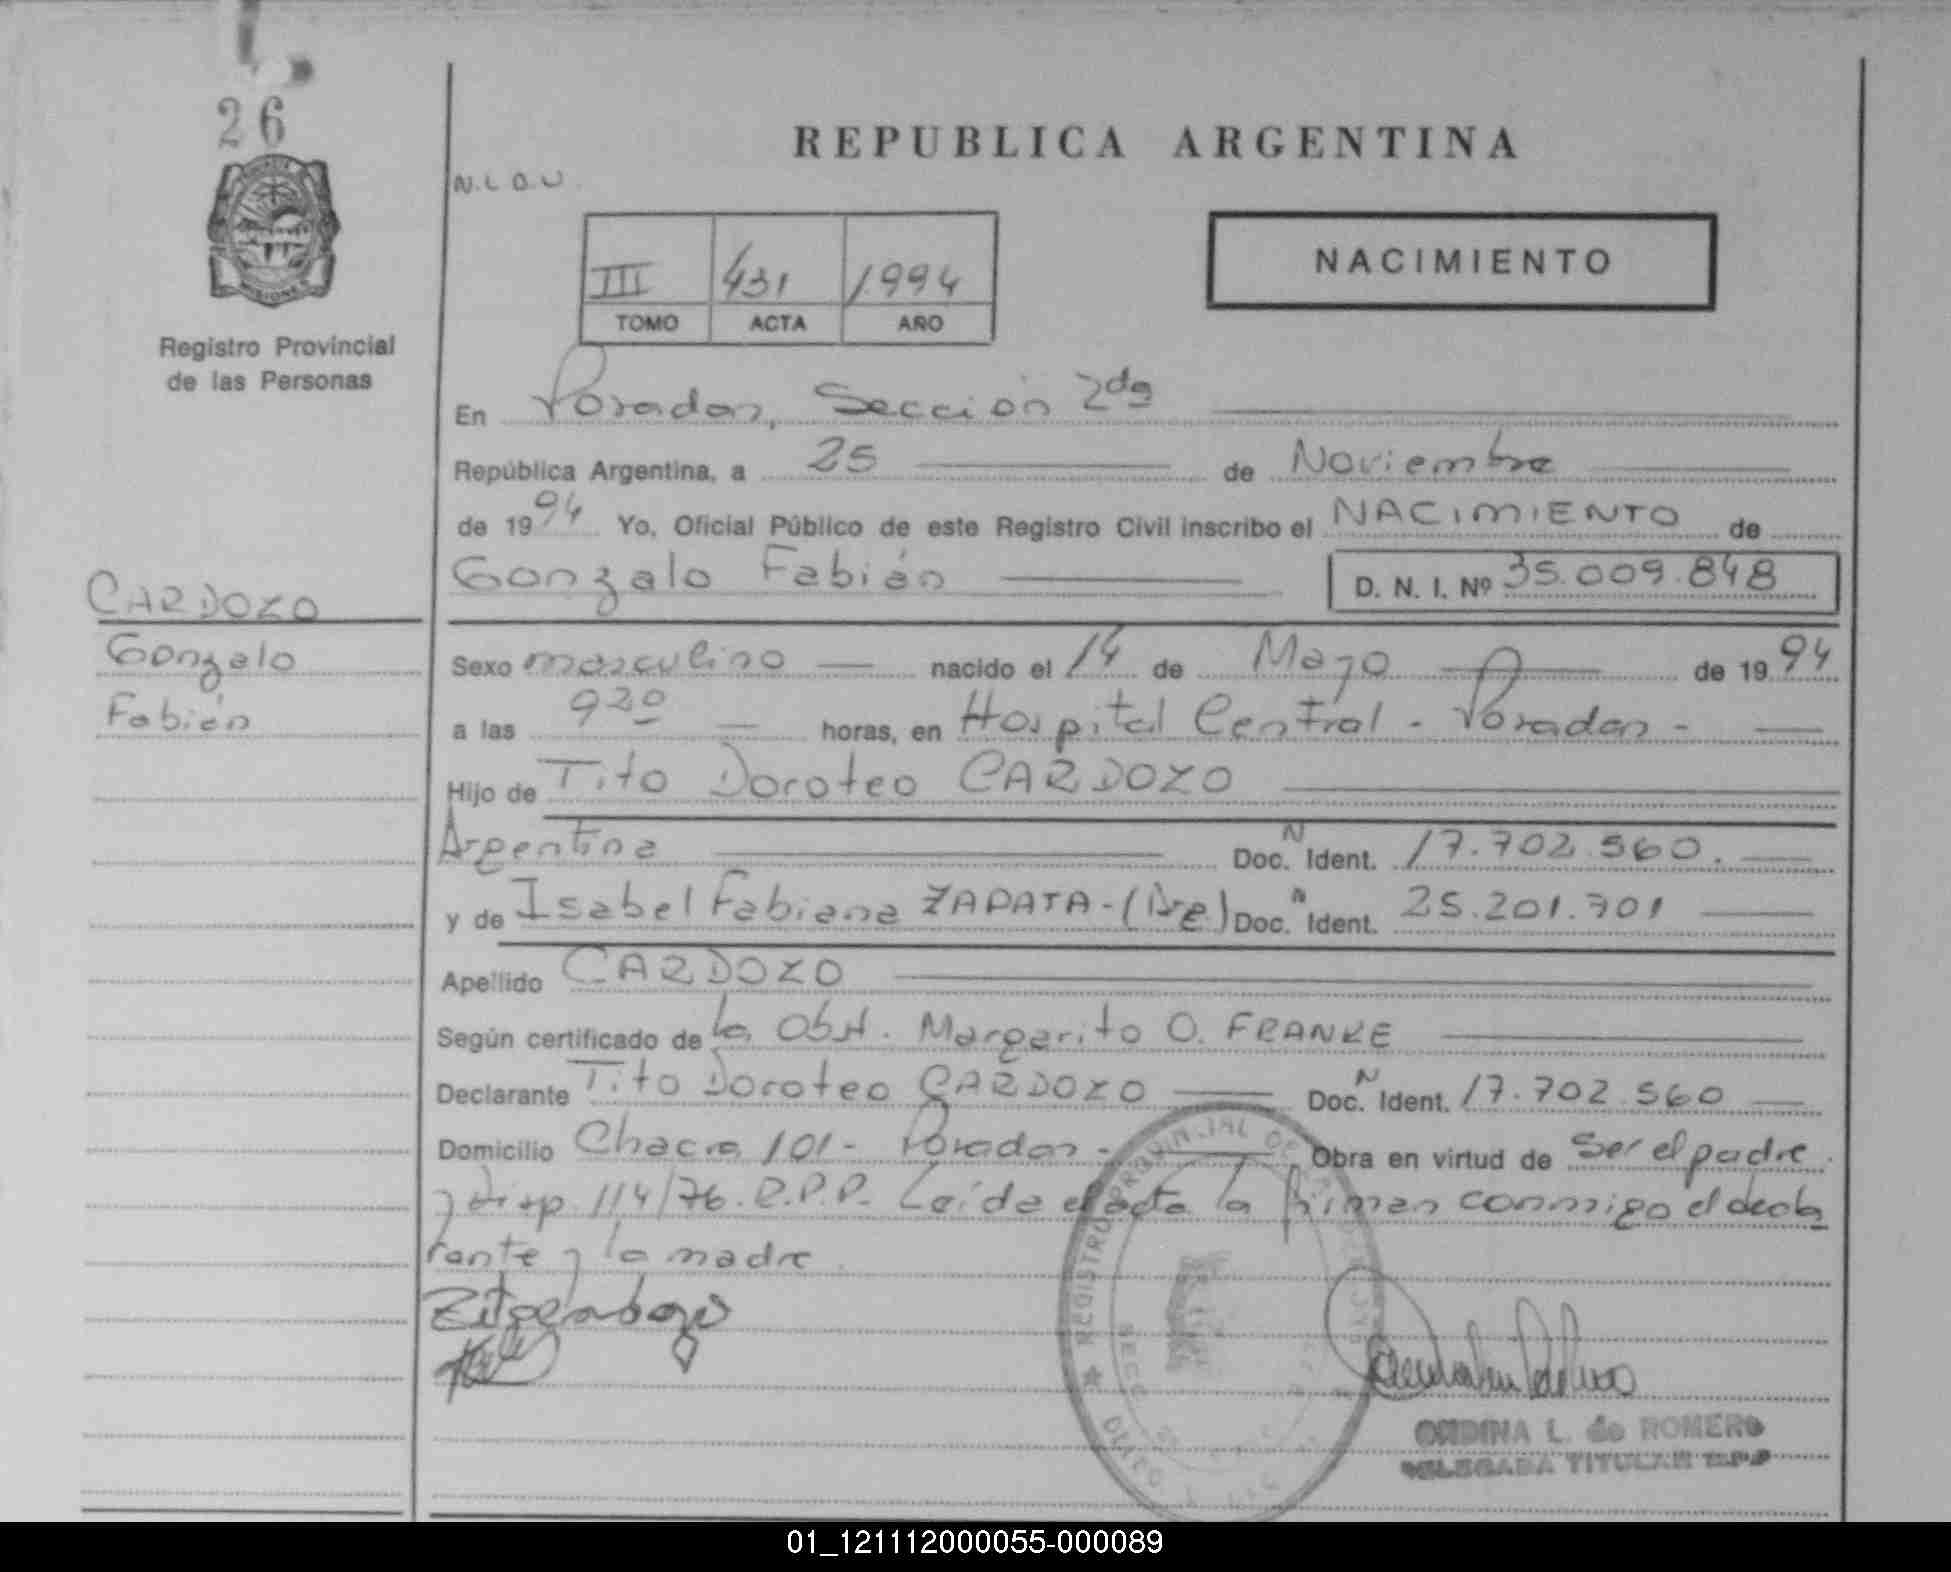 26
REPUBLICA ARGENTINA
N.L.O.U.
NACIMIENTO
III 431 1994
TOMO ACTA AÑO
MISIONES
Registro Provincial
de las Personas
En Posadas, Sección 2da
República Argentina, a 25 de Noviembre
de 1994 Yo, Oficial Público de este Registro Civil inscribo el NACIMIENTO de
Gonzalo Fabián D. N. I. Nº 35.009.848
CARDOZO
Gonzalo
Fabián
Sexo masculino nacido el 14 de Mayo de 1994
a las 920 horas, en Hospital Central - Posadas -
Hijo de Tito Doroteo CARDOZO
Argentina Doc. N Ident. 17.702.560.
y de Isabel Fabiana ZAPATA - (Arg.) Doc. N Ident. 25.201.701
Apellido CARDOZO
Según certificado de la Obst. Margarita O. FRANKE
Declarante Tito Doroteo CARDOZO Doc. N Ident. 17.702.560
Domicilio Chacra 101 - Posadas - Obra en virtud de Ser el padre
y Disp. 114/76. R.P.P. Leída el acta la firman conmigo el decla
rante y la madre
REGISTRO PROVINCIAL DE LAS
ONDINA L. de ROMERO
DELEGADA TITULAR R.P.P.
01_121112000055-000089